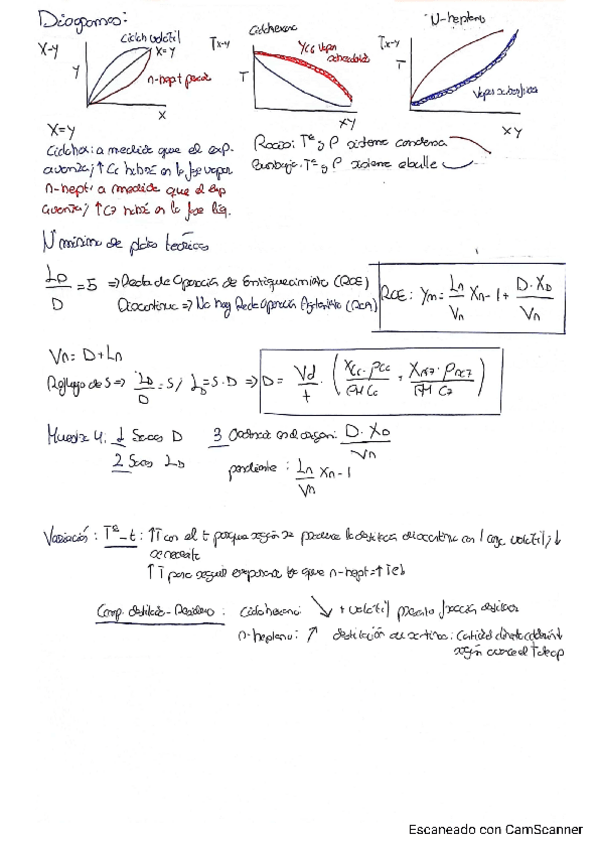 Diagramas:
X-y
Ciclch volátil
X=Y
n-hept pesado
Y
X
Ciclohexano
Tx-y
Yc6 vapor
T
XY
N-heptano
Tx-y
T
Vapor
XY
X=Y
Ciclohex: a medida que el exp.
avanza, ↑ C6 habrá en la fase vapor
n-hept: a medida que el exp
avanza, ↑ C7 habrá en la fase líq.
Rocío: Tª y P sistema condensa
Burbuja: Tª y P sistema ebulle
Nº mínimo de platos teóricos
LD/D = 5 ⇒ Recta de Operación de Enriquecimiento (ROE)
Discontinua ⇒ No hay Recta Operación Agotamiento (ROA)
ROE: Yn = Ln/Vn Xn-1 + D·XD/Vn
Vn = D+Ln
Reflujo de 5 ⇒ LD/D = 5 / LD = 5·D ⇒ D = Vd/t · (XC6·ρC6/PM C6 + XC7·ρC7/PM C7)
Muestra 4: 1 Sacas D
2 Sacas LD
3 Ordenada en el origen: D·XD/Vn
pendiente: Ln/Vn Xn-1
Variación: Tª-t: ↑T con el t porque según se produce la destilación discontinua con l comp volátil, ↓
se necesita
↑T para seguir evaporando ya que n-hept = ↑Teb
Comp. destilado-Residuo: ciclohexano ↘ + volátil
n-heptano: ↗ destilación discontinua: cantidad
según avanza el
Escaneado con CamScanner